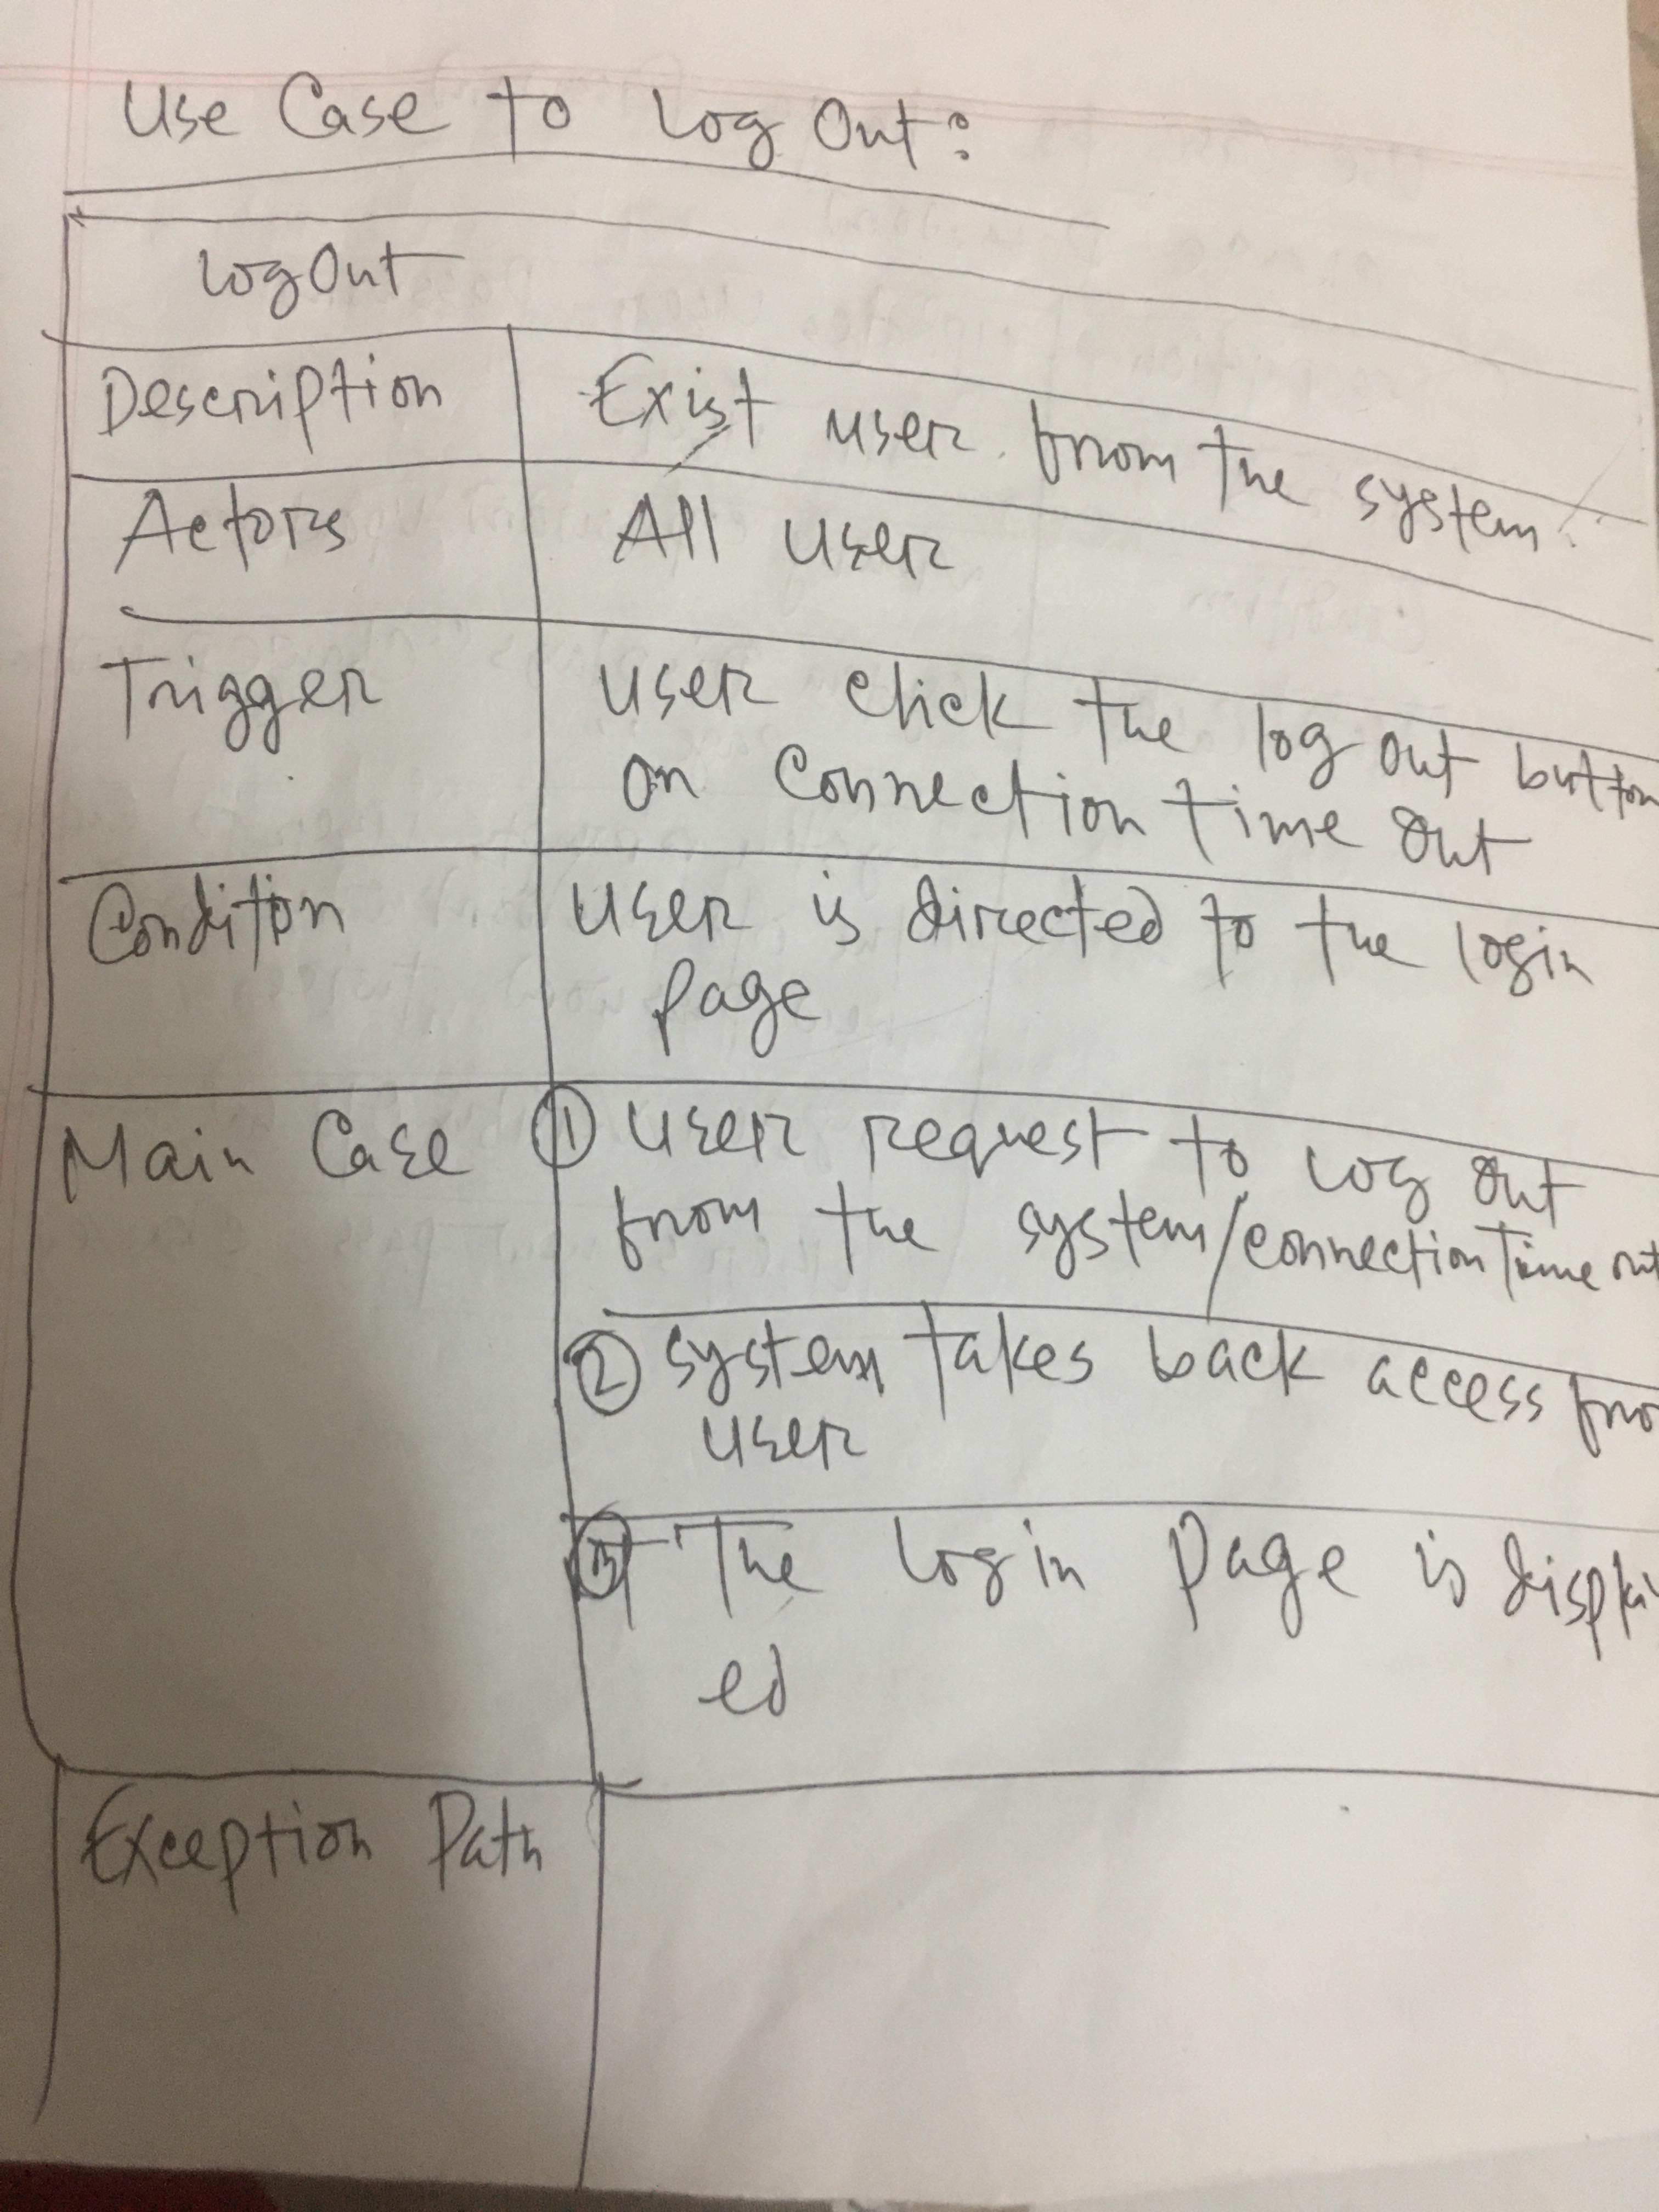 Use Case to Log Out:
LogOut
Description
Exist user from the system.
Actors
All user
Trigger
user click the log out button
on Connection time out
Condition
user is directed to the login
page
Main Case
① user request to Log out
from the system/connection Time out
② system takes back access
user
③ The Login page is
ed
Exception Path